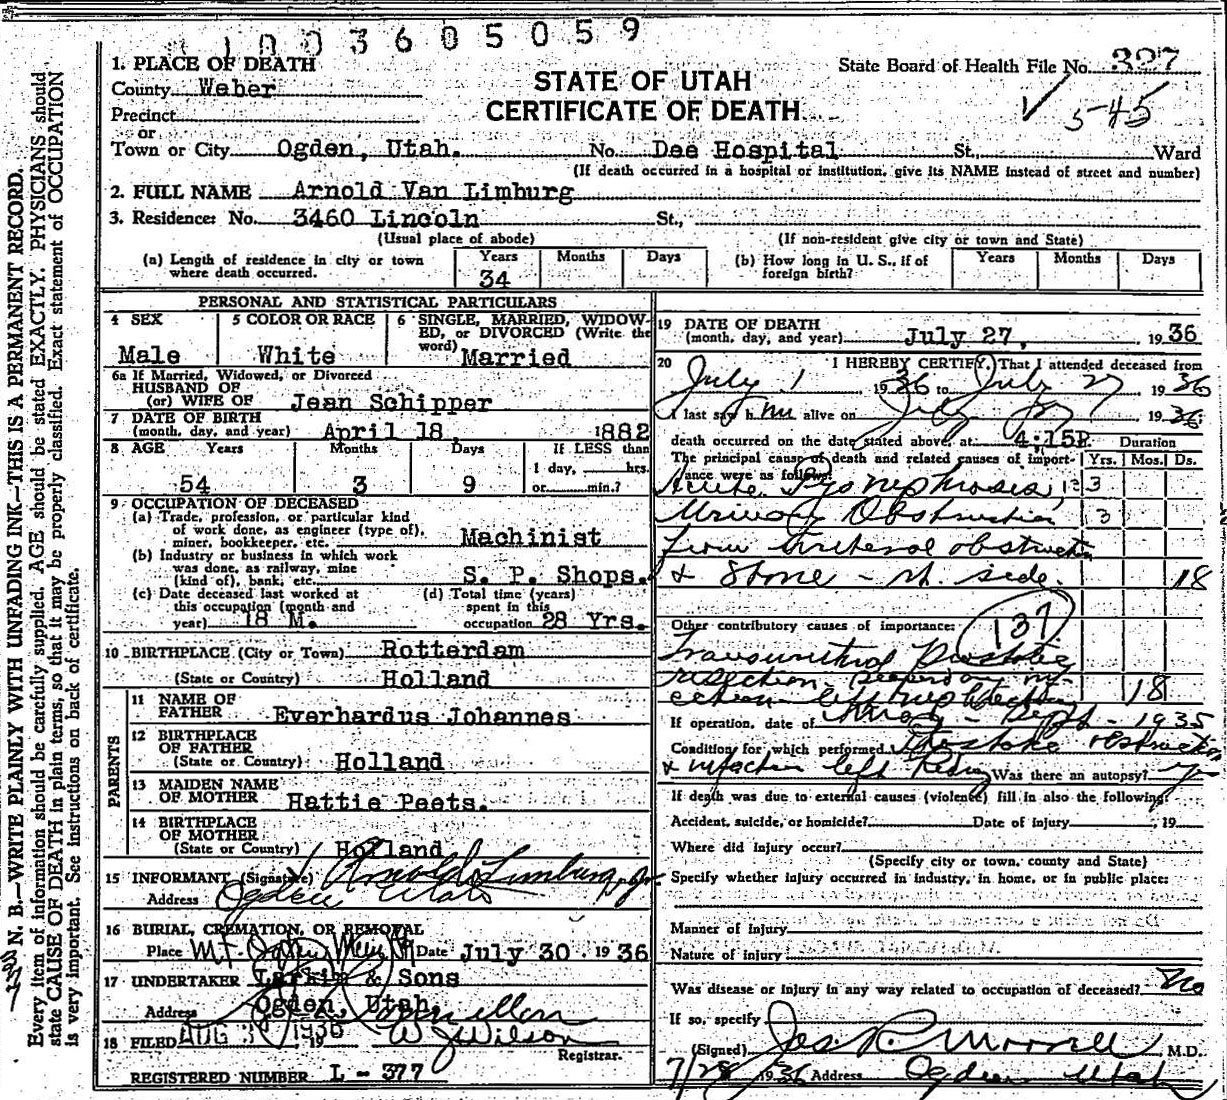 1003605059
1. PLACE OF DEATH
State Board of Health File No. 327
County Weber
STATE OF UTAH
CERTIFICATE OF DEATH
5-45
Precinct
or
Town or City Ogden, Utah. No. Dee Hospital St., Ward
(If death occurred in a hospital or institution, give its NAME instead of street and number)
2. FULL NAME Arnold Van Limburg
3. Residence: No. 3460 Lincoln St.,
(Usual place of abode) (If non-resident give city or town and State)
(a) Length of residence in city or town where death occurred. Years 34 Months Days
(b) How long in U. S., if of foreign birth? Years Months Days
PERSONAL AND STATISTICAL PARTICULARS
4 SEX Male
5 COLOR OR RACE White
6 SINGLE, MARRIED, WIDOWED, or DIVORCED (Write the word) Married
6a If Married, Widowed, or Divorced
HUSBAND OF
(or) WIFE OF Jean Schipper
7 DATE OF BIRTH
(month, day, and year) April 18, 1882
8 AGE Years 54 Months 3 Days 9
If LESS than
1 day, hrs.
or min.?
9 OCCUPATION OF DECEASED
(a) Trade, profession, or particular kind
of work done, as engineer (type of),
miner, bookkeeper, etc. Machinist
(b) Industry or business in which work
was done, as railway, mine
(kind of), bank, etc. S. P. Shops.
(c) Date deceased last worked at
this occupation (month and
year) 18 M.
(d) Total time (years)
spent in this
occupation 28 Yrs.
10 BIRTHPLACE (City or Town) Rotterdam
(State or Country) Holland
PARENTS
11 NAME OF
FATHER Everhardus Johannes
12 BIRTHPLACE
OF FATHER
(State or Country) Holland
13 MAIDEN NAME
OF MOTHER Hattie Peets.
14 BIRTHPLACE
OF MOTHER
(State or Country) Holland
15 INFORMANT (Signature) Arnold Limburg, Jr.
Address Ogden Utah
16 BURIAL, CREMATION, OR REMOVAL
Place Mt. Ogden Date July 30 1936
17 UNDERTAKER Larkin & Sons
Address Ogden, Utah.
18 FILED AUG 3 1936 19 W J Wilson
Registrar.
REGISTERED NUMBER L - 377
19 DATE OF DEATH
(month, day, and year) July 27, 1936
20 I HEREBY CERTIFY, That I attended deceased from
July 1 1936 to July 27 1936
I last saw him alive on July 27 1936
death occurred on the date stated above, at 4:15P. Duration
The principal cause of death and related causes of importance were as follows: Yrs. Mos. Ds.
Acute Pyonephrosis, 3
Urinary Obstruction 3
from ureteral obstruction
& Stone - rt. side. 18
Other contributory causes of importance: 137
Transurethral Prostatic
resection
left 18
If operation, date of Sept - 1935
Condition for which performed Prostatic obstruction
& infection left Kidney Was there an autopsy? yes
If death was due to external causes (violence) fill in also the following:
Accident, suicide, or homicide? Date of injury , 19
Where did injury occur?
(Specify city or town, county and State)
Specify whether injury occurred in industry, in home, or in public place:
Manner of injury
Nature of injury
Was disease or injury in any way related to occupation of deceased? No
If so, specify
(Signed) Jos. R. Morrell M.D.
7/28 1936 Address Ogden Utah
N. B.—WRITE PLAINLY WITH UNFADING INK—THIS IS A PERMANENT RECORD.
Every item of information should be carefully supplied. AGE should be stated EXACTLY. PHYSICIANS should
state CAUSE OF DEATH in plain terms, so that it may be properly classified. Exact statement of OCCUPATION
is very important. See instructions on back of certificate.